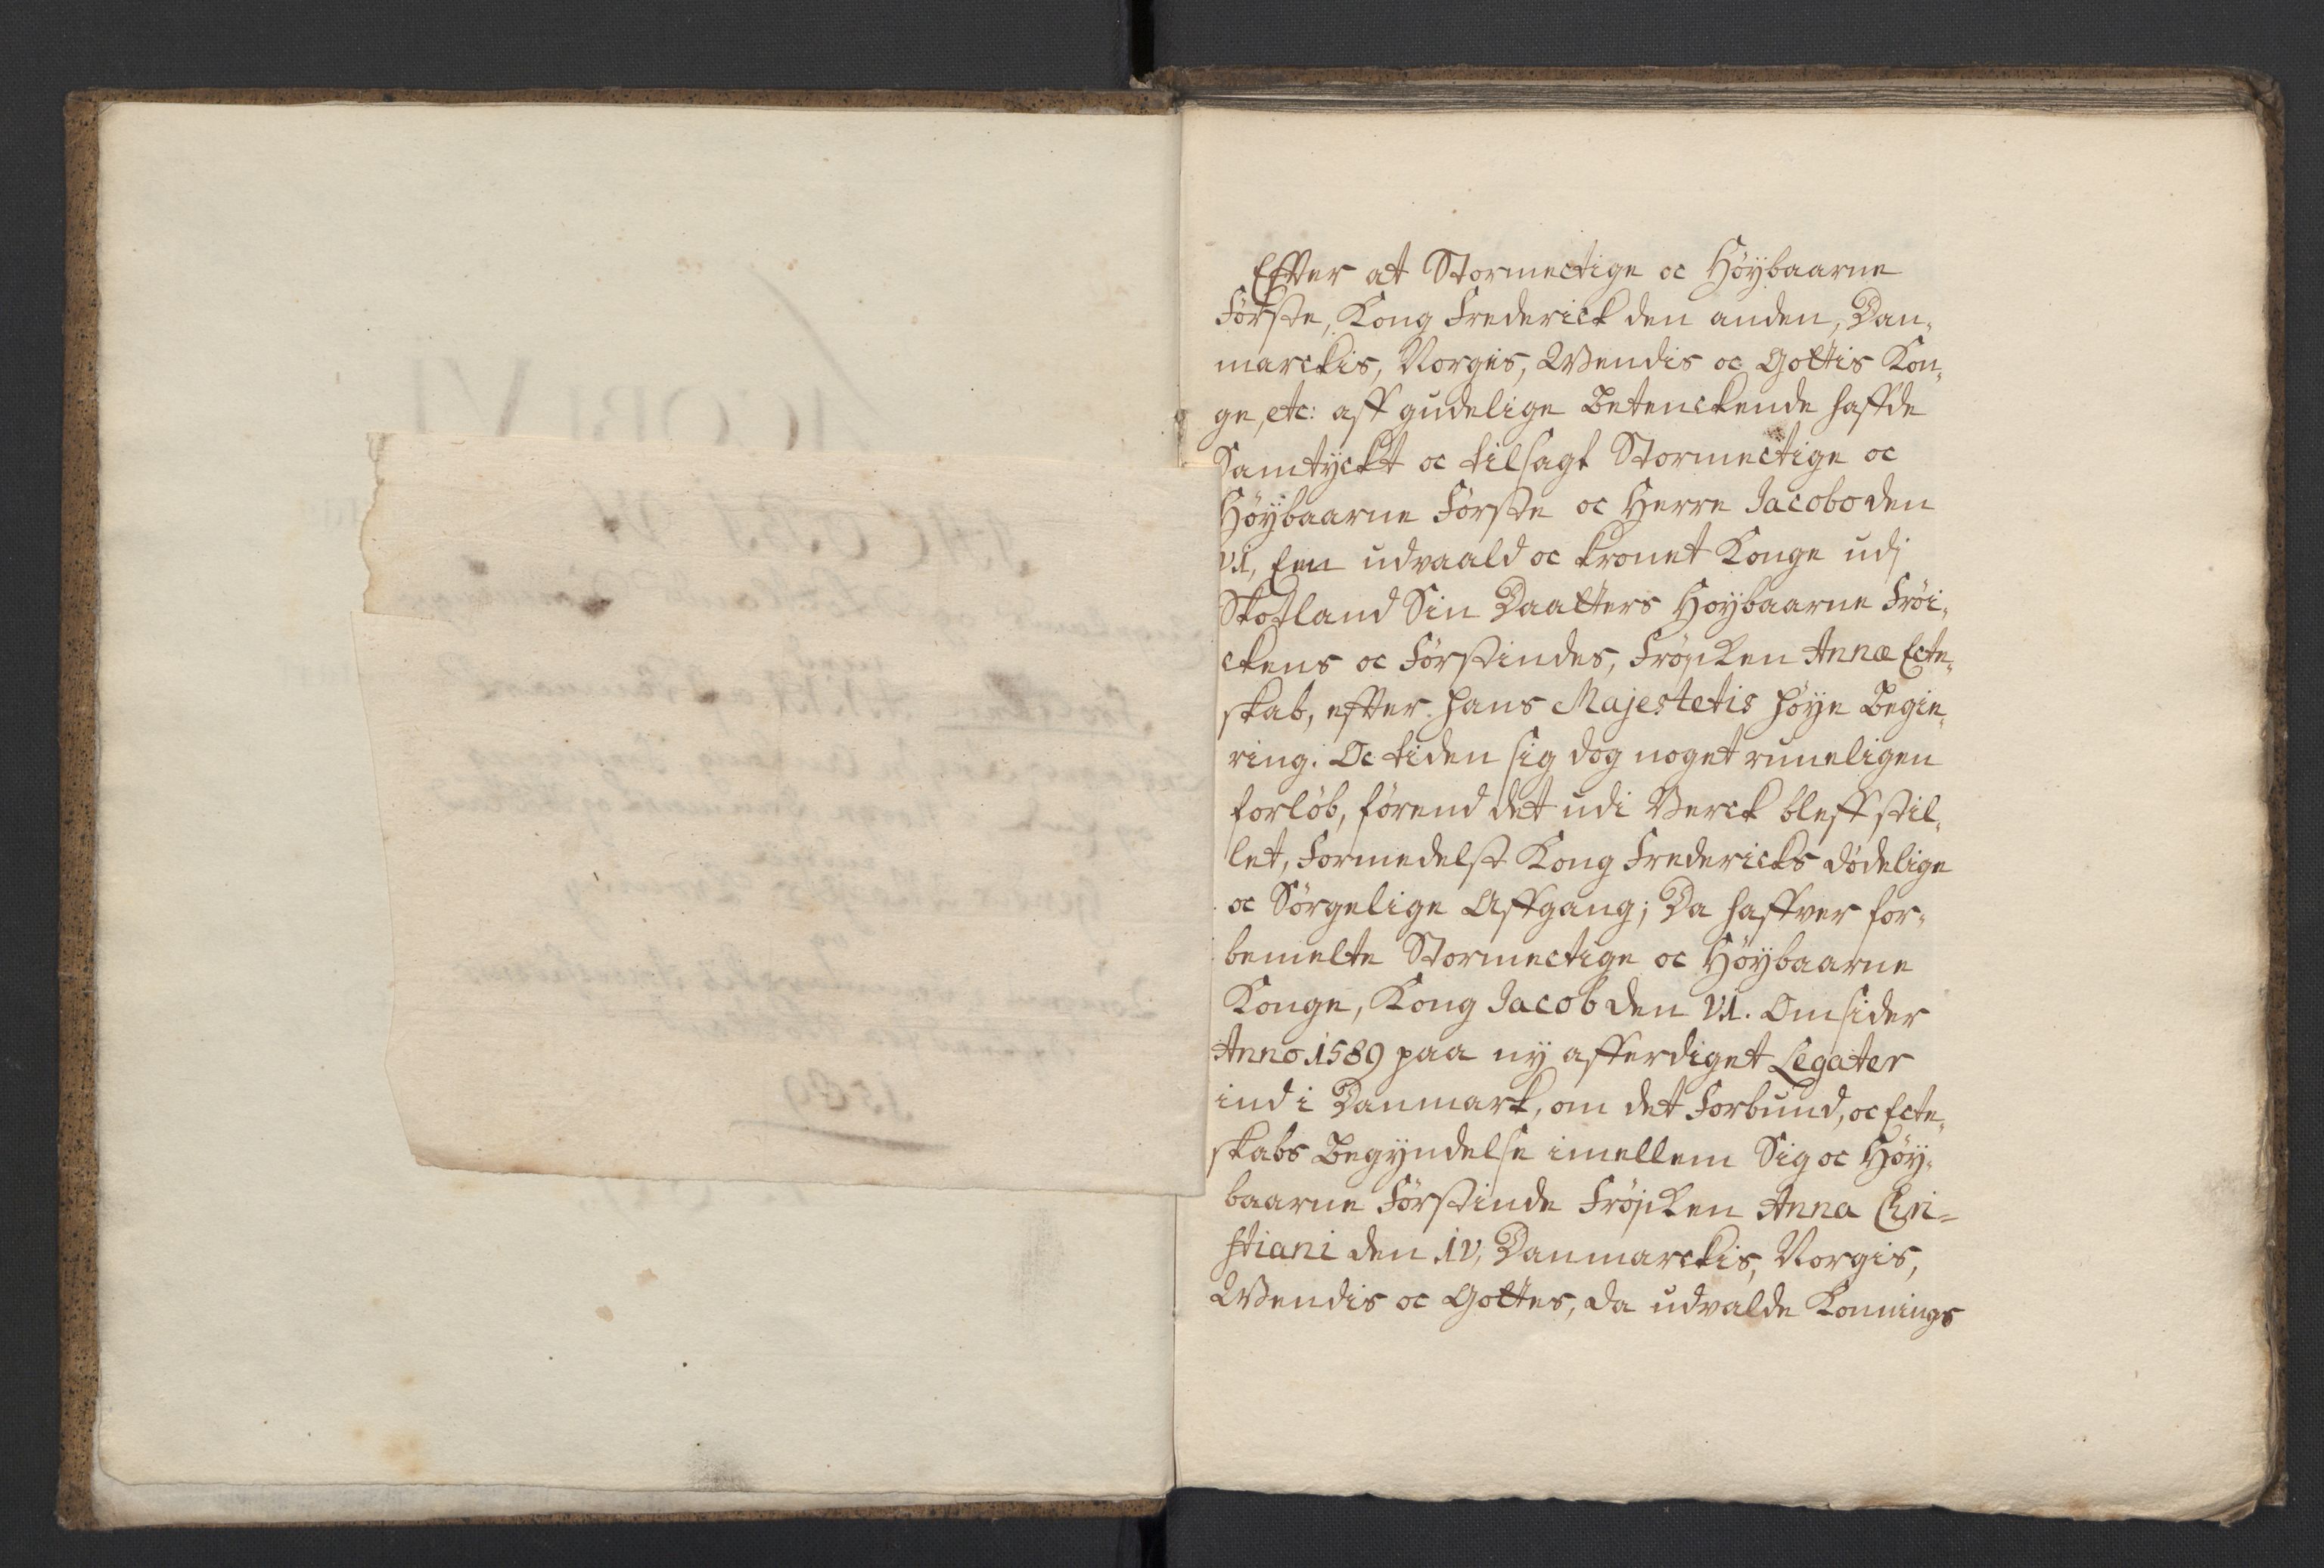 Effter at Stormectige oc Höÿbaarne
Förste, Kong Frederick den anden, Dan-
marckis, Norgis, Wendis oc Gottis Kon-
ge, etc: aff gudelige Betenckende haffde
Samtÿckt oc tilsagt Stormectige oc
Höÿbaarne Förste oc Herre Jacobo den
VI, Een udvaald oc kronet Konge udi
Skotland Sin Daatters Hoÿbaarne Fröi-
ckens oc Förstindes, Fröjcken Annæ Ecte-
skab, effter hans Majestetis höÿe Begie-
ring. Oc tiden sig dog noget rumeligen
forlöb, förend det udi Verck bleff stil-
let, Formedelst Kong Fredericks dödelige
oc Sörgelige Affgang; Da haffver for-
bemelte Stormectige oc Höÿbaarne
Konge, Kong Jacob den VI. Omsider
Anno 1589 paa nÿ afferdiget Legater
ind i Danmark, om det Forbund, oc Ecte-
skabs Begÿndelse imellem Sig oc Höÿ-
baarne Förstinde Fröjcken Anna Chri=
stiani den IV, Danmarckis, Norgis,
Wendis oc Gottes, da udvalde Konnings